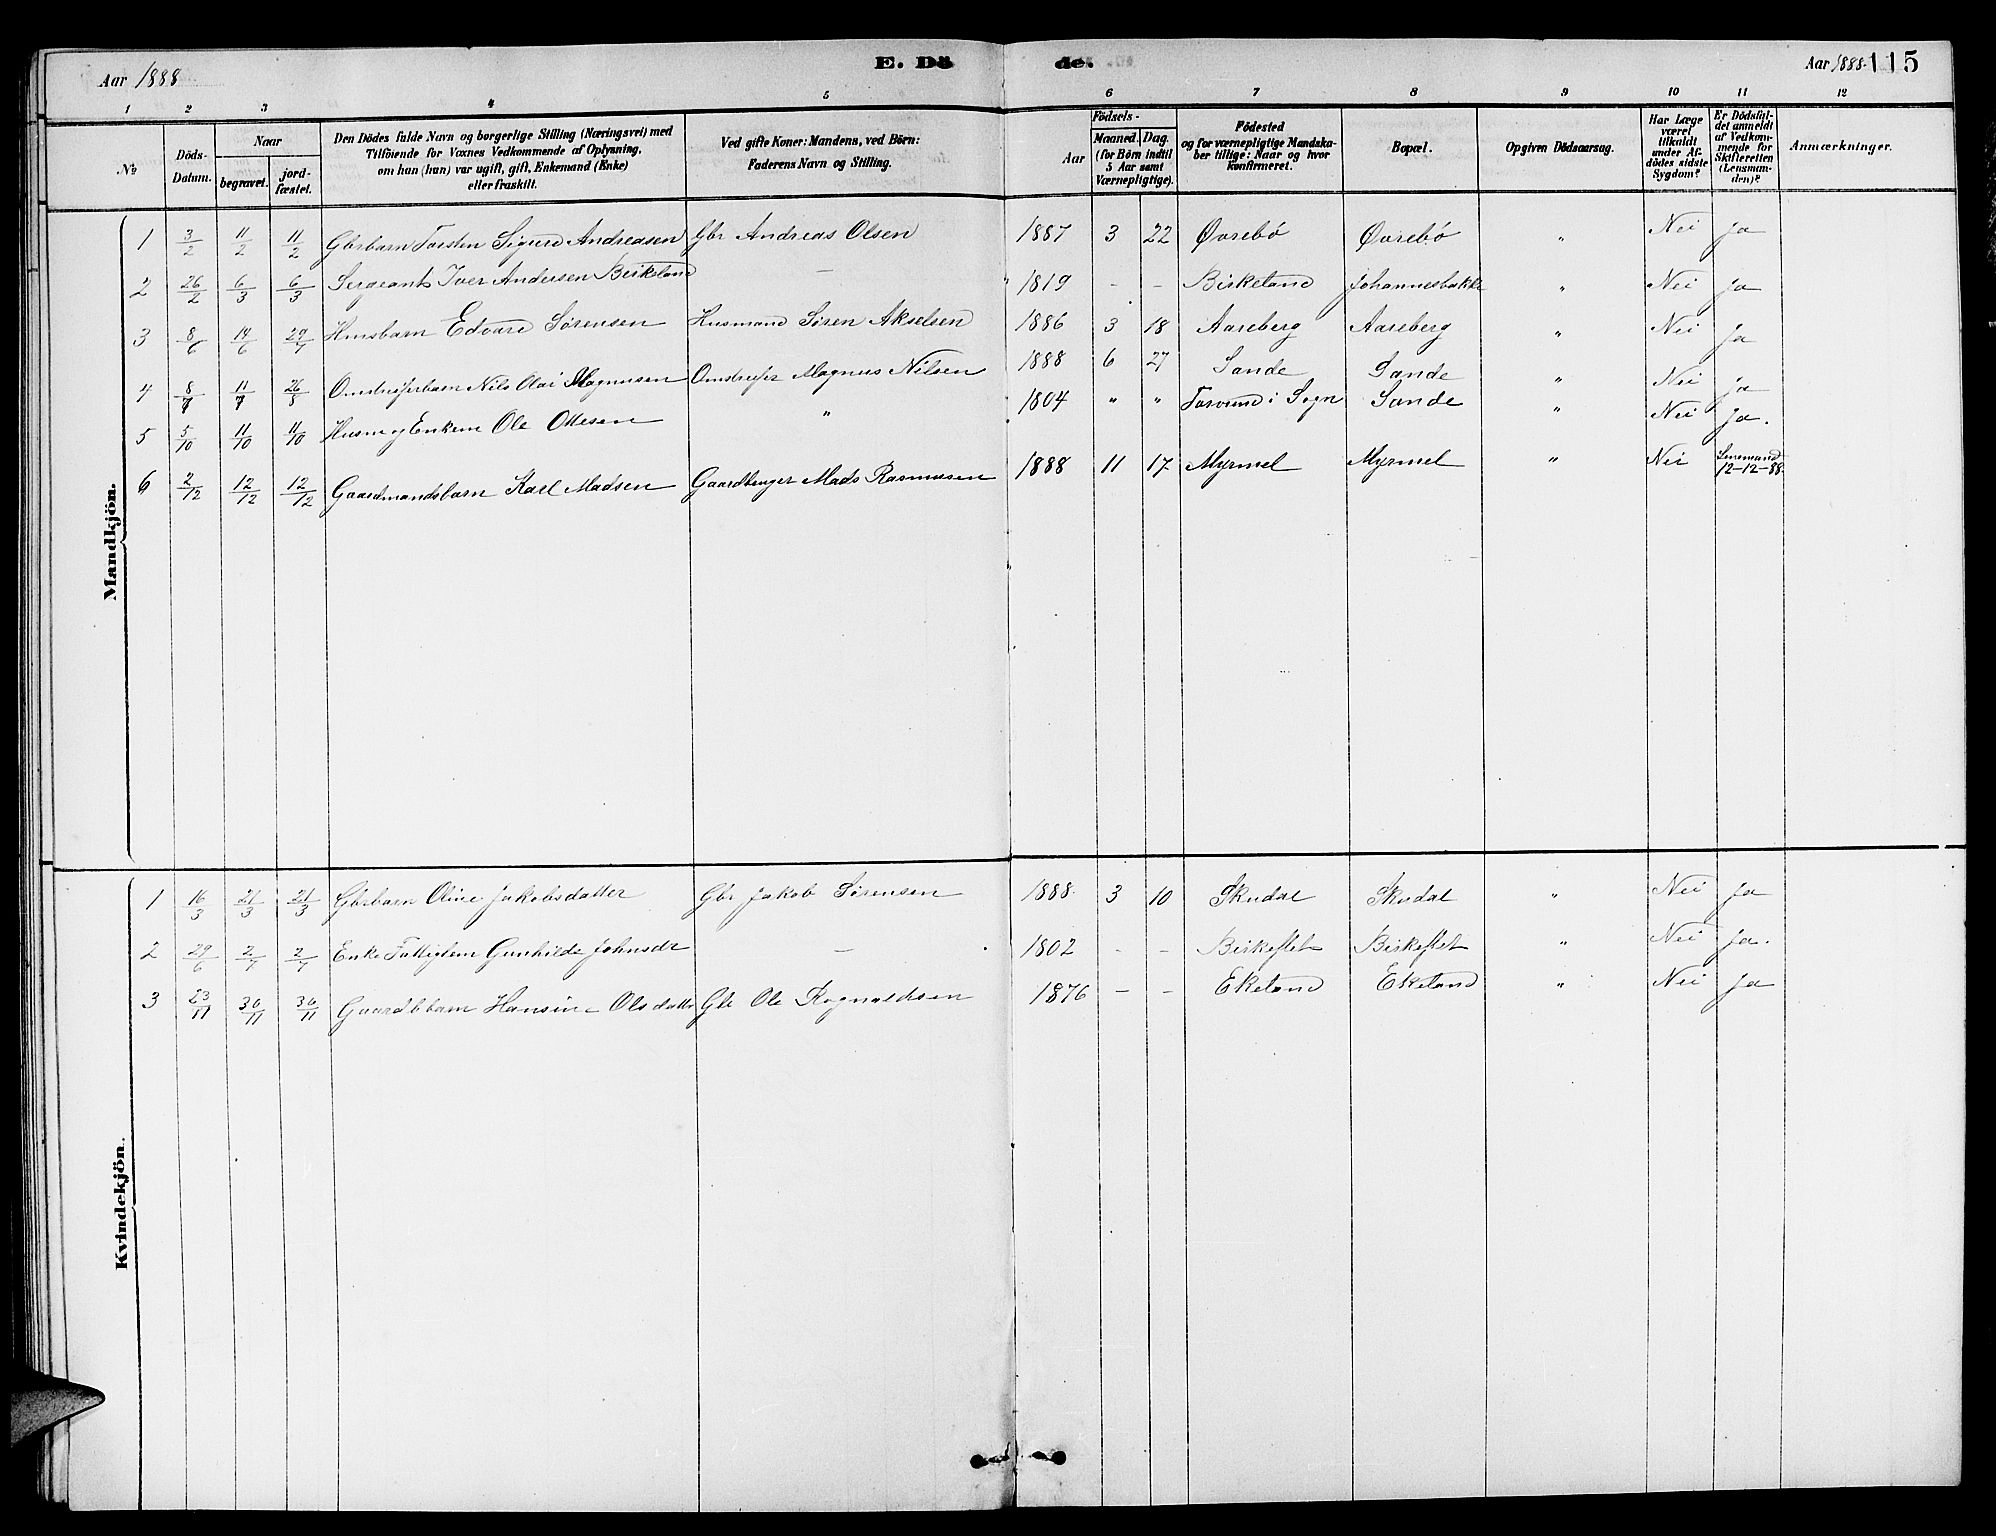 Aar 1888
E. Dö de.
Aar 1888. 115
1 2 3 4 5 6 7 8 9 10 11 12
№
Döds-Datum.
Naar
begravet.
jord-fæstet.
Den Dödes fulde Navn og borgerlige Stilling (Næringsvei) med
Tilföiende for Voxnes Vedkommende af Oplysning,
om han (hun) var ugift, gift, Enkemand (Enke)
eller fraskilt.
Ved gifte Koner: Mandens, ved Börn:
Faderens Navn og Stilling.
Födsels-
Aar
Maaned. Dag.
(for Börn indtil
5 Aar samt
Værnepligtige).
Födested
og for værnepligtige Mandska-
ber tillige: Naar og hvor
Konfirmeret.
Bopæl.
Opgiven Dödsaarsag.
Har Læge
været
tilkaldt
under Af-
dödes sidste
Sygdom?
Er Dödsfal-
det anmeldt
af Vedkom-
mende for
Skifteretten
(Lensman-
den)?
Anmærkninger.
Mandkjön.
1 3/2 11/2 11/2 Gbrbarn Torsten Sigurd Andreasen Gbr Andreas Olsen 1887 3 22 Øvrebø Øvrebø " Nei Ja
2 26/2 6/3 6/3 Sergeant Iver Andersen Birkeland — 1819 - - Birkeland Johannesbakke " Nei Ja
3 8/6 14/6 29/7 Husbarn Edvard Sørensen Husmand Søren Akselsen 1886 3 18 Aareberg Aareberg " Nei Ja
4 8/7 11/7 26/8 Nils Olai Magnusen Magnus Nilsen 1888 6 27 Sande Sande " Nei Ja
5 5/10 11/10 11/10 Husm og Enkem Ole Ottesen " 1804 " " i Sogn Sande " Nei Ja.
6 2/12 12/12 12/12 Gaardmandsbarn Karl Madsen Gaardbruger Mads Rasmussen 1888 11 17 Myrmel Myrmel " Nei Lensmand 12-12-88
Kvindekjön.
1 16/3 21/3 21/3 Gbrbarn Oline Jakobsdatter Gbr Jakob Sørensen 1888 3 10 Skudal Skudal " Nei Ja
2 29/6 2/7 2/7 Enke Fattiglem Gunhilde Johnsdr — 1802 - - Birkeflet Birkeflet " Nei Ja.
3 23/11 30/11 30/11 Gaardbbarn Hansine Olsdatter Gbr Ole Rognaldsen 1876 - - Ekeland Ekeland " Nei Ja